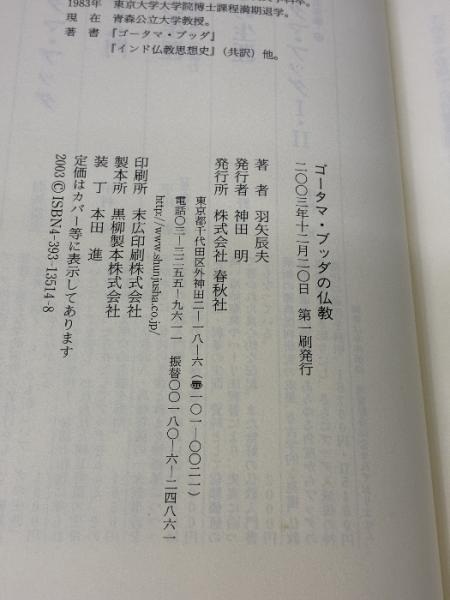 1983年 東京大学大学院博士課程満期退学。
現在 青森公立大学教授。
著書 『ゴータマ・ブッダ』
『インド仏教思想史』(共訳)他。
ゴータマ・ブッダの仏教
二〇〇三年十二月二〇日 第一刷発行
著者 羽矢辰夫
発行者 神田 明
発行所 株式会社 春秋社
東京都千代田区外神田二―一八―六(〠一〇一―〇〇二一)
電話〇三―三二五五―九六一一 振替〇〇一八〇―六―二四八六一
http://www.shunjusha.co.jp/
印刷所 末広印刷株式会社
製本所 黒柳製本株式会社
装丁 本田 進
定価はカバー等に表示してあります
2003 © ISBN4-393-13514-8